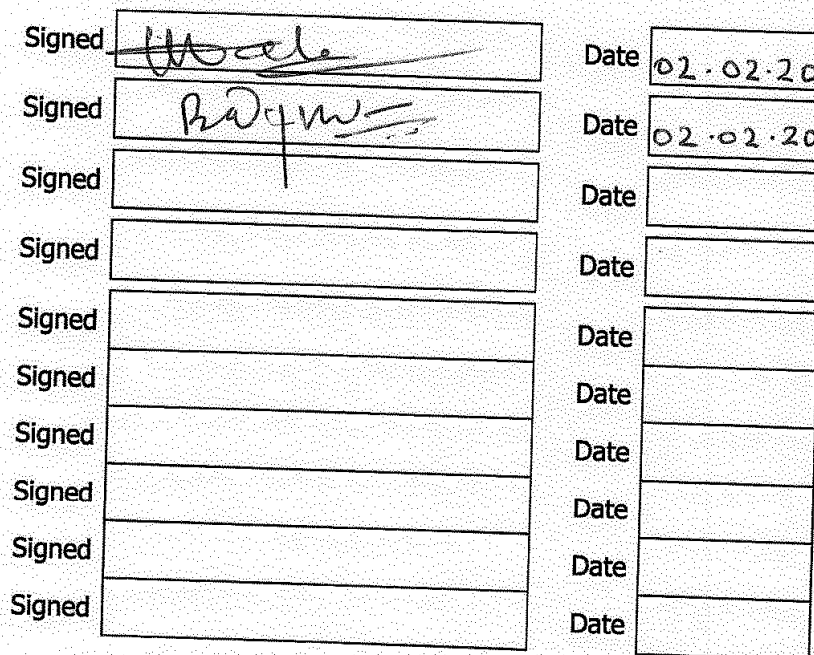 Signed Date 02.02.20
Signed Date 02.02.20
Signed Date
Signed Date
Signed Date
Signed Date
Signed Date
Signed Date
Signed Date
Signed Date